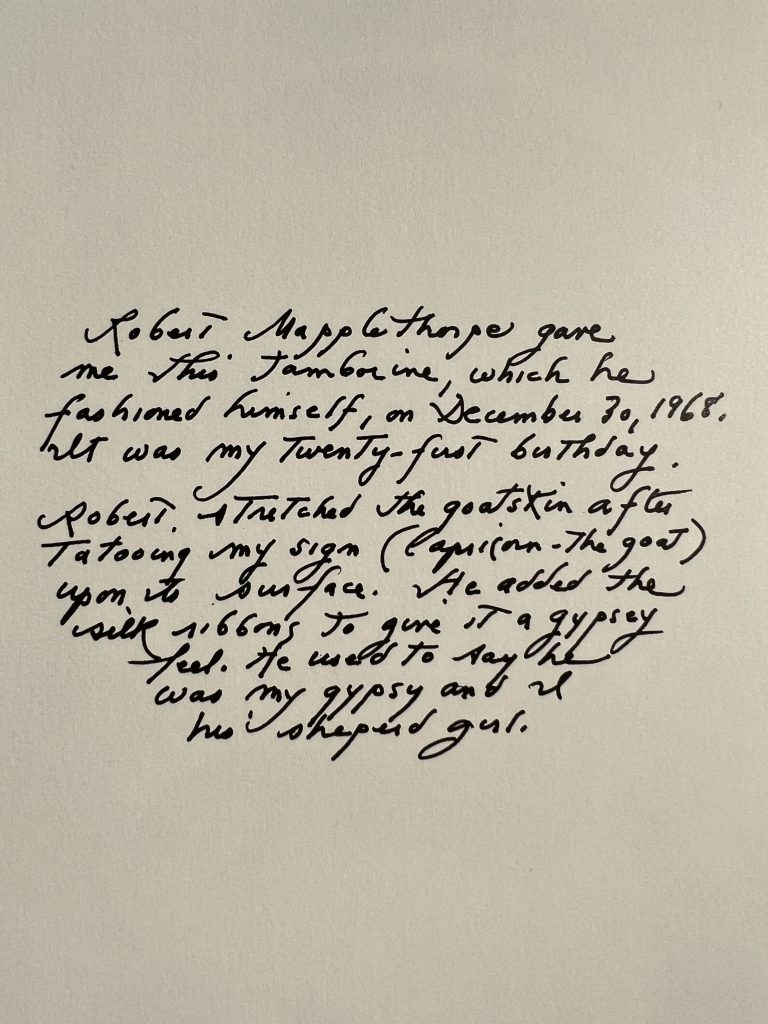 Robert Mapplethorpe gave
me this tambourine, which he
fashioned himself, on December 30, 1968.
It was my twenty-first birthday.
Robert stretched the goatskin after
tatooing my sign (Capricorn - the goat)
upon its surface. He added the
silk ribbons to give it a gypsey
feel. He used to say he
was my gypsy and I
his sheperd girl.